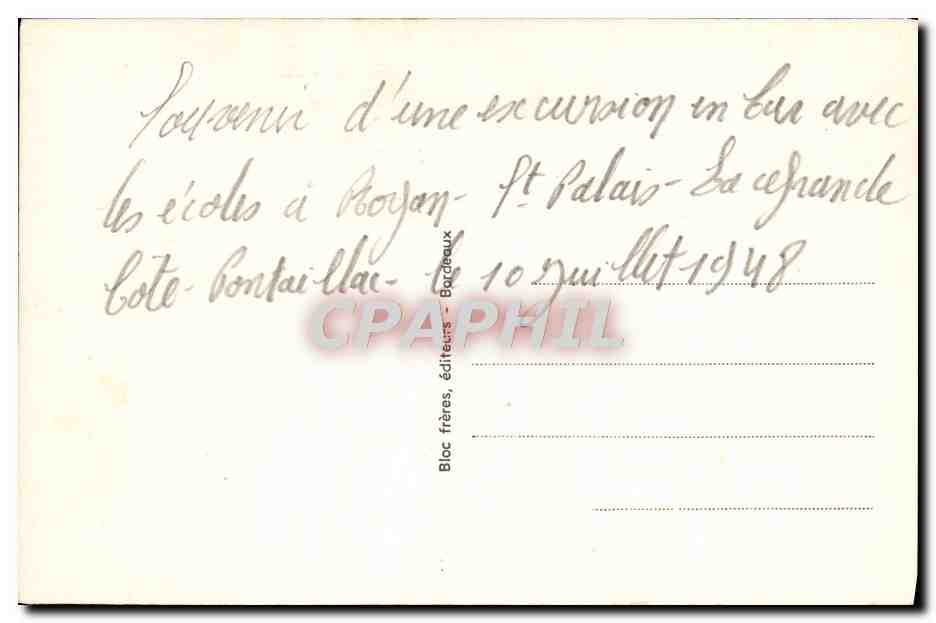 Souvenir d'une excursion en bus avec
les écoles à Royan - St Palais - La Grande
Côte - Pontaillac - le 10 Juillet 1948
CPAPHIL
Bloc frères, éditeurs - Bordeaux